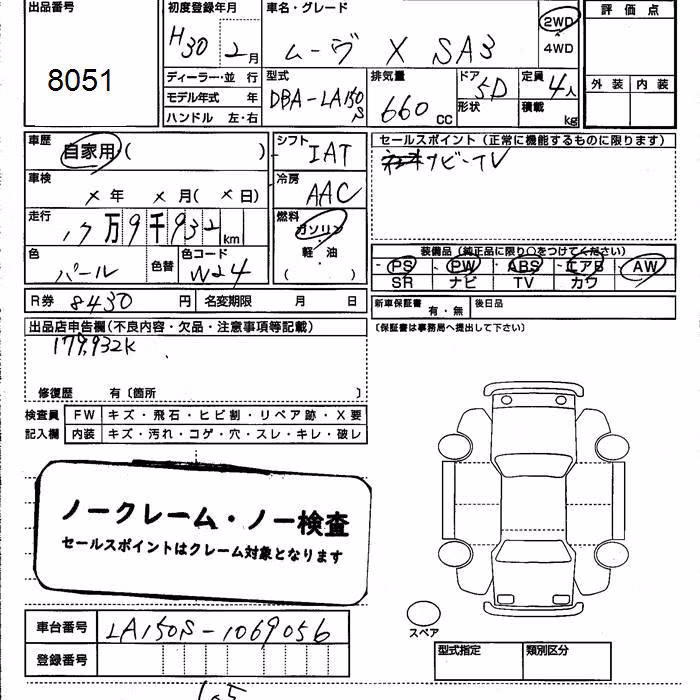 出品番号
8051
初度登録年月
H30 2月
車名・グレード
ムーヴ X SA3
2WD
4WD
評価点
外装 内装
ディーラー・並 行
モデル年式 年
ハンドル 左・右
型式
DBA-LA150S
排気量
660 cc
ドア
5D
形状
定員
4人
積載
kg
車歴
自家用・( )
車検
× 年 × 月( × 日)
走行
17万9千932km
色
パール
色替
色コード
W24
シフト
IAT
冷房
AAC
燃料
ガソリン
軽・油
( )
セールスポイント (正常に機能するものに限ります)
ナビ・TV
装備品 (純正品に限り○をつけてください)
PS PW ABS エアB AW
SR ナビ TV カワ
R券 8430 円
名変期限 月 日
新車保証書
有・無
後日品
(保証書は事務局へ提出して下さい)
出品店申告欄(不良内容・欠品・注意事項等記載)
179,932K
修復歴 有〔箇所 〕
検査員 FW キズ・飛石・ヒビ割・リペア跡・X要
記入欄 内装 キズ・汚れ・コゲ・穴・スレ・キレ・破レ
ノークレーム・ノー検査
セールスポイントはクレーム対象となります
車台番号
LA150S-1069056
登録番号
スペア
型式指定 類別区分